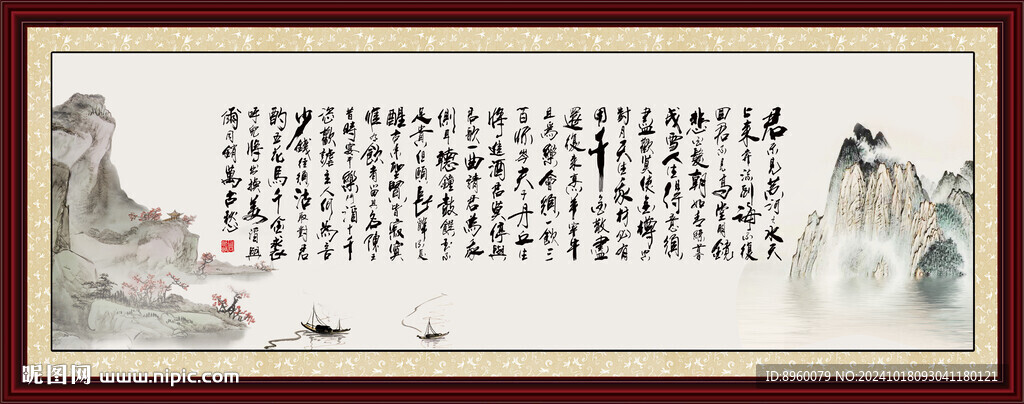 君不見黃河之水天
上來奔流到海不復
回君不見高堂明鏡
悲白髮朝如青絲暮
成雪人生得意須
盡歡莫使金樽空
對月天生我材必有
用千金散盡
還復來烹羊宰牛
且為樂會須一飲三
百杯岑夫子丹丘生
將進酒君莫停與
君歌一曲請君為我
側耳聽鐘鼓饌玉不
足貴但願長醉不復
醒古來聖賢皆寂寞
惟有飲者留其名陳王
昔時宴平樂酒十千
恣歡謔主人何為言
少錢徑須沽取對君
酌五花馬千金裘
呼兒將出換美酒與
爾同銷萬古愁
昵图网 www.nipic.com
ID:8960079 NO:20241018093041180121